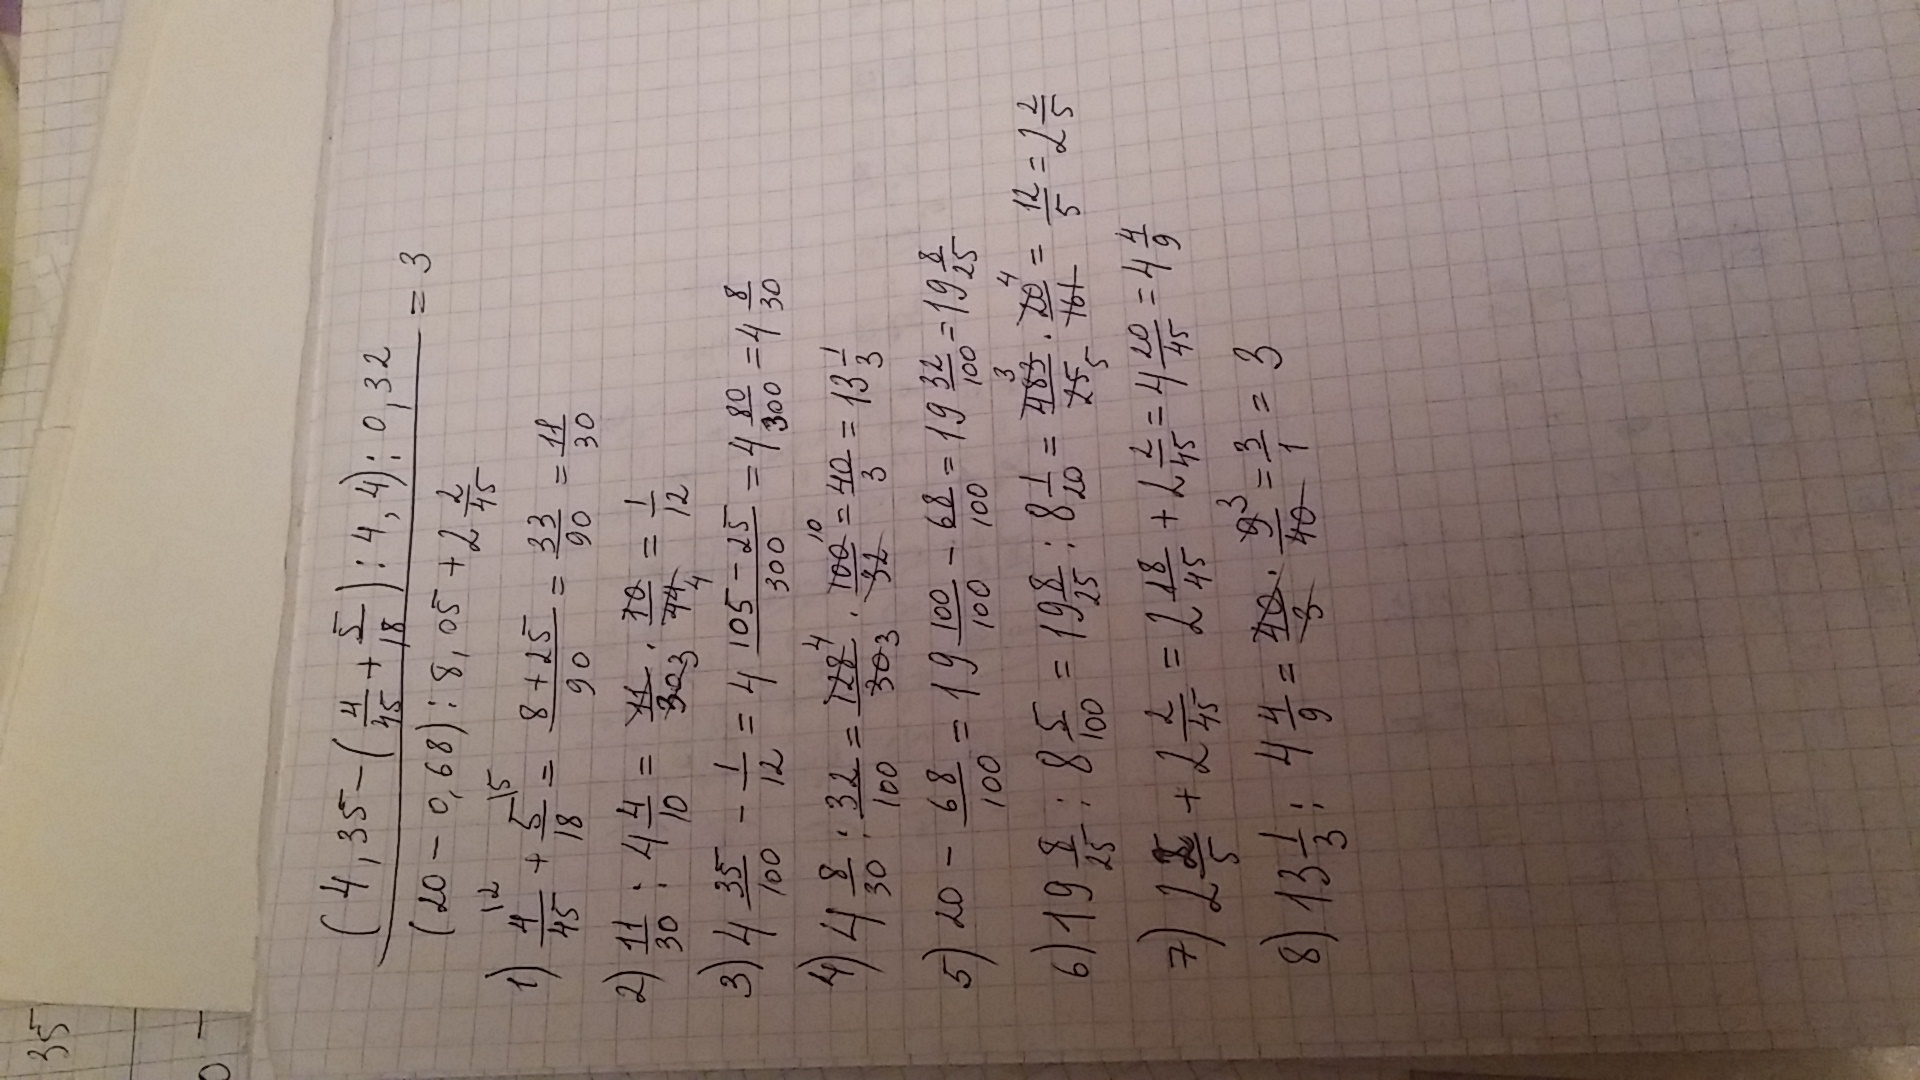 35
0 -
(4,35 - (4/45 + 5/18) : 4,4) : 0,32
(20 - 0,68) : 8,05 + 2 2/45 = 3
1) 4/45 12 + 5/18 15 = 8+25/90 = 33/90 = 11/30
2) 11/30 : 4 4/10 = 11/30 3 · 10/44 4 = 1/12
3) 4 35/100 - 1/12 = 4 105-25/300 = 4 80/300 = 4 8/30
4) 4 8/30 : 32/100 = 128 4/30 3 · 100 10/32 = 40/3 = 13 1/3
5) 20 - 68/100 = 19 100/100 - 68/100 = 19 32/100 = 19 8/25
6) 19 8/25 : 8 5/100 = 19 8/25 : 8 1/20 = 483 3/25 5 · 20 4/161 = 12/5 = 2 2/5
7) 2 2/5 + 2 2/45 = 2 18/45 + 2 2/45 = 4 20/45 = 4 4/9
8) 13 1/3 : 4 4/9 = 40/3 · 9 3/40 = 3/1 = 3